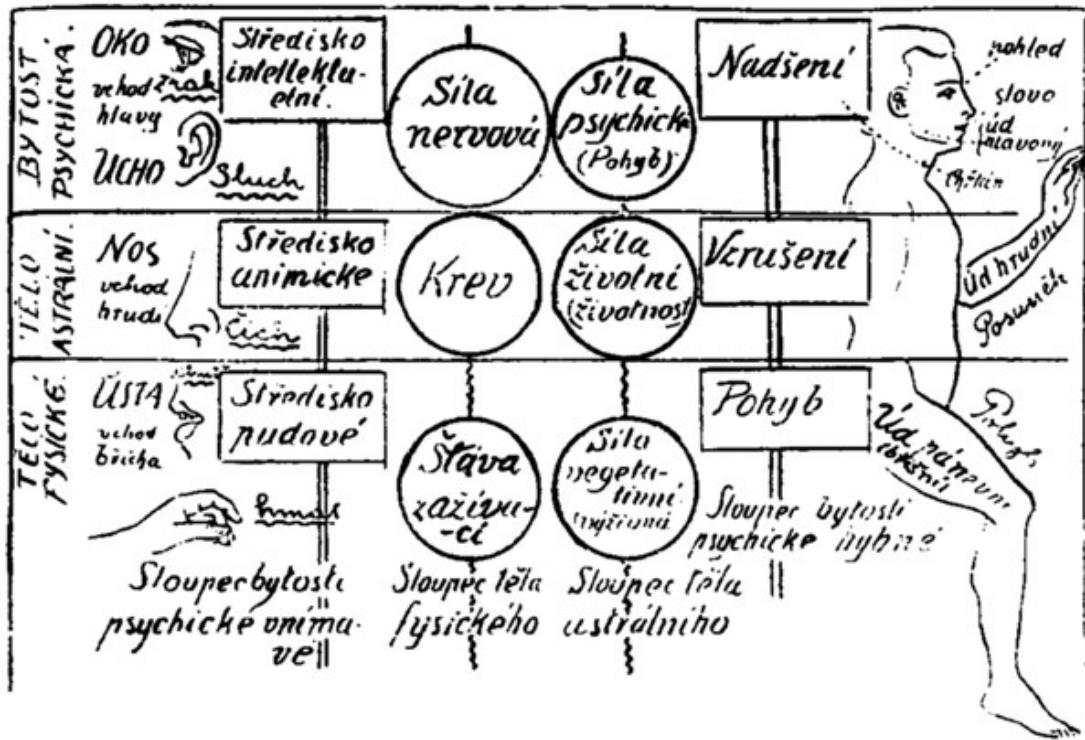 BYTOST
PSYCHICKÁ.
OKO
vchod
hlavy
Zrak
UCHO
Sluch
Středisko
intellektu-
elní.
Síla
nervová
Síla
psychická
(Pohyb)
Nadšení
pohled
slovo
úd
hlavový
TĚLO
ASTRÁLNÍ.
NOS
vchod
hrudi
Čich
Středisko
animické
Krev
Síla
životní
(životnost)
Vzrušení
Úd hrudní
Posuněk
TĚLO
FYSICKÉ.
ÚSTA
vchod
břicha
hmat
Středisko
pudové
Šťáva
zažíva-
-cí
Síla
vegeta-
tivní
Pohyb
Úd
břišní
Sloupec bytosti
psychické vníma-
vé
Sloupec těla
fysického
Sloupec těla
astrálního
Sloupec bytosti
psychické hybné